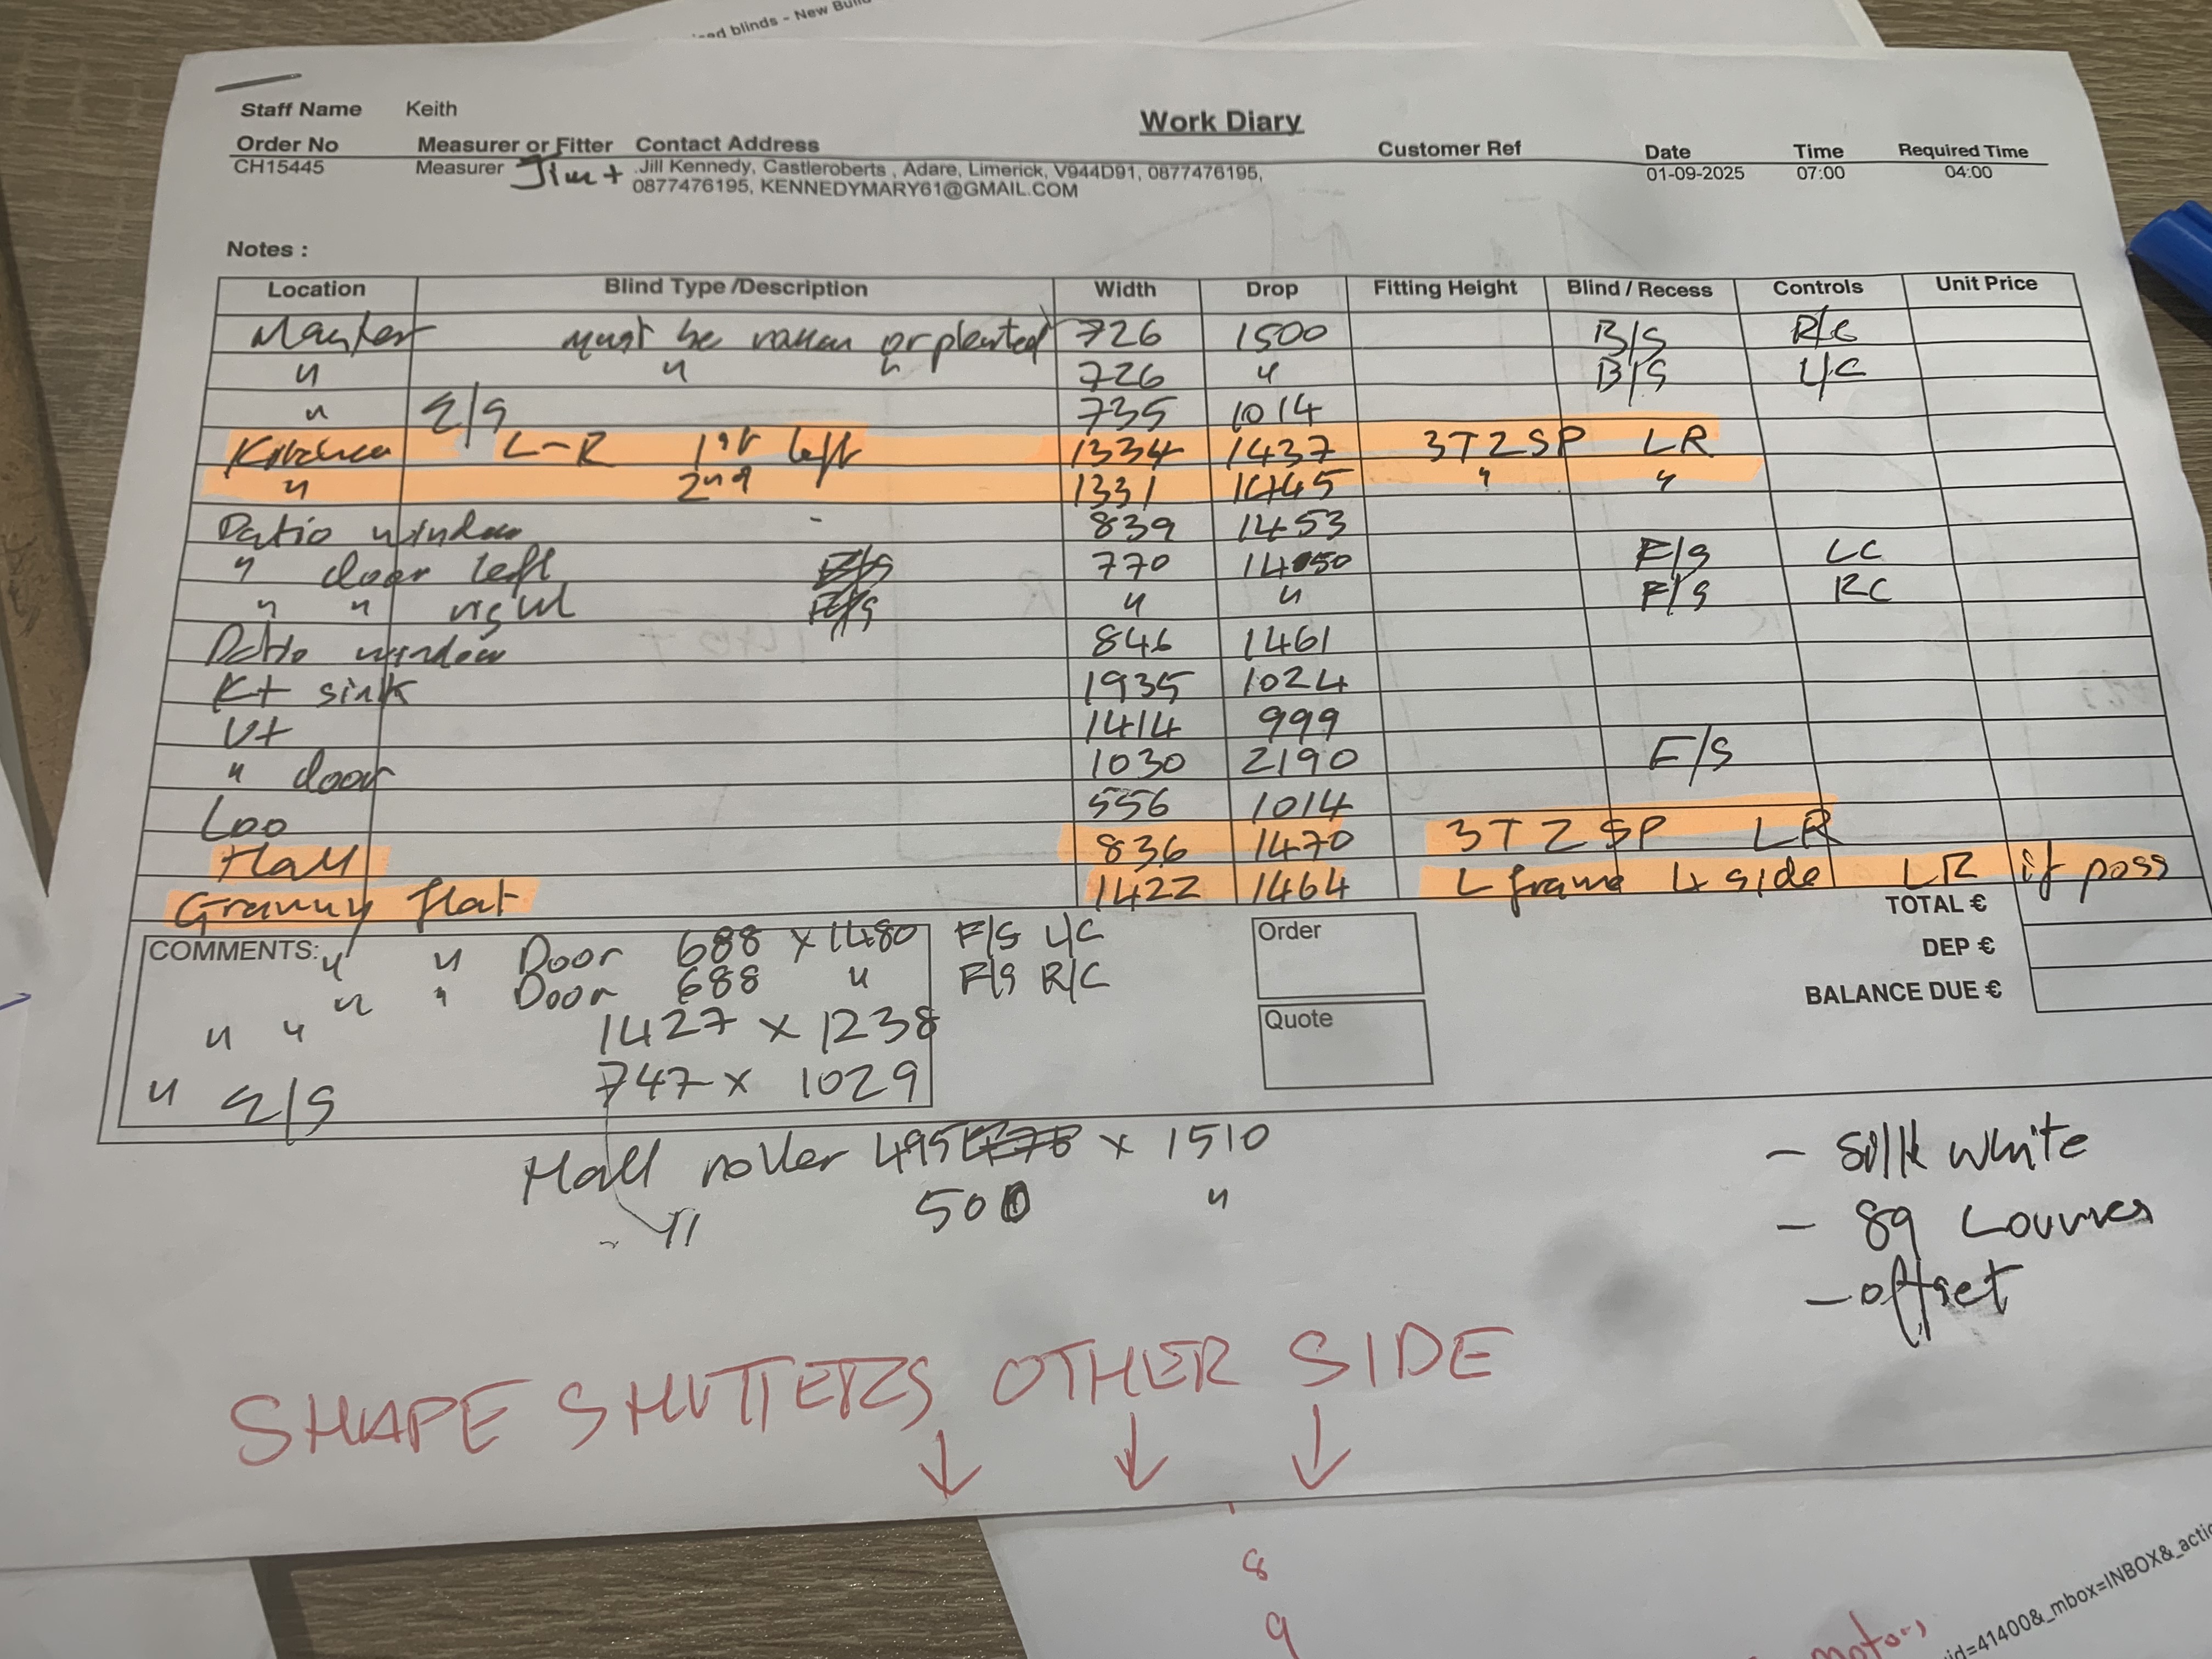 ed blinds - New Build
Staff Name Keith
Work Diary
Order No Measurer or Fitter Contact Address Customer Ref Date Time Required Time
CH15445 Measurer Jim + Jill Kennedy, Castleroberts , Adare, Limerick, V944D91, 0877476195, 01-09-2025 07:00 04:00
0877476195, KENNEDYMARY61@GMAIL.COM
Notes :
Location Blind Type /Description Width Drop Fitting Height Blind / Recess Controls Unit Price
Master must be roller or pleated 726 1500 B/S R/C
" " " 726 " B/S L/C
" E/S 735 1014
Kitchen L-R 1st left 1334 1437 3TZSP LR
" 2nd 1331 1445 " "
Patio window - 839 1453
" door left F/S 770 1450 F/S LC
" " right F/S " " F/S RC
Patio window 846 1461
Kt sink 1935 1024
Ut 1414 999
" door 1030 2190 F/S
Loo 556 1014
Hall 836 1470 3TZSP LR
Granny flat 1422 1464 L frame 4 side LR if poss
TOTAL €
COMMENTS: " " Door 688 x 1480 F/S L/C Order DEP €
" " Door 688 " F/S R/C BALANCE DUE €
" " 1427 x 1238 Quote
" E/S 747 x 1029
Hall roller 495 x 1510
" 500 "
- Silk white
- 89 Louvres
- offset
SHAPE SHUTTERS OTHER SIDE
8
9
motors
id=41400&_mbox=INBOX&_actio